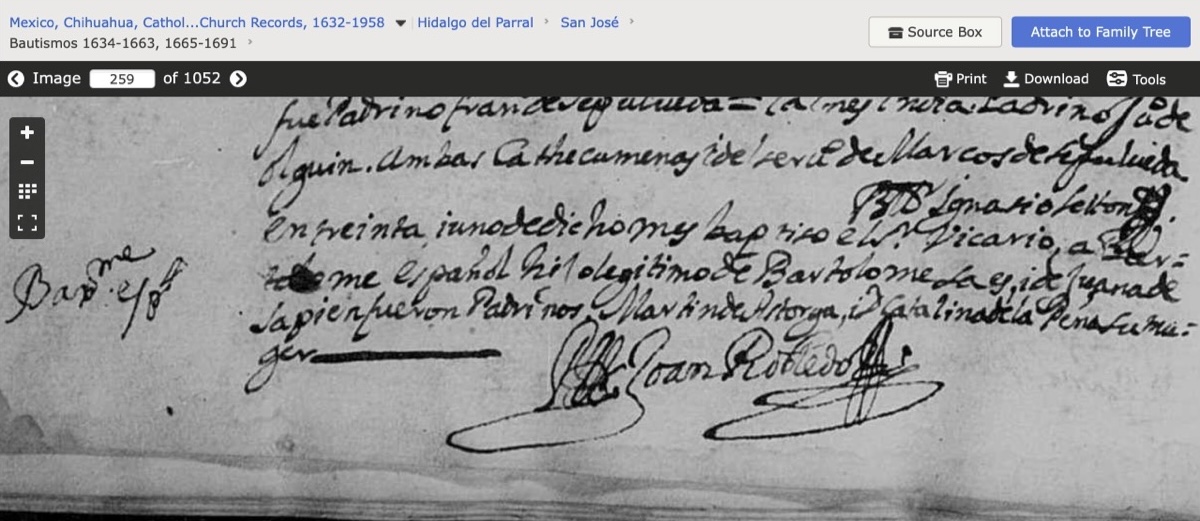 Mexico, Chihuahua, Cathol...Church Records, 1632-1958 Hidalgo del Parral San José
Bautismos 1634-1663, 1665-1691
Source Box
Attach to Family Tree
Image 259 of 1052
Print Download Tools
fue Padrino fran de sepulueda = la mes India. Padrino Ju de
olguin. Ambas Cathecumenas i del serui de Marcos de sepulueda
Br D Ignacio
en treinta i uno de dicho mes baptiso el Sr. Vicario, a Bar=
tolome español hijo legitimo de Bartolome i de Juana de
fueron Padrinos. Martin de Astorga, i D Catalina de la Peña su mu=
ger
Barme. esp
Joan Robledo